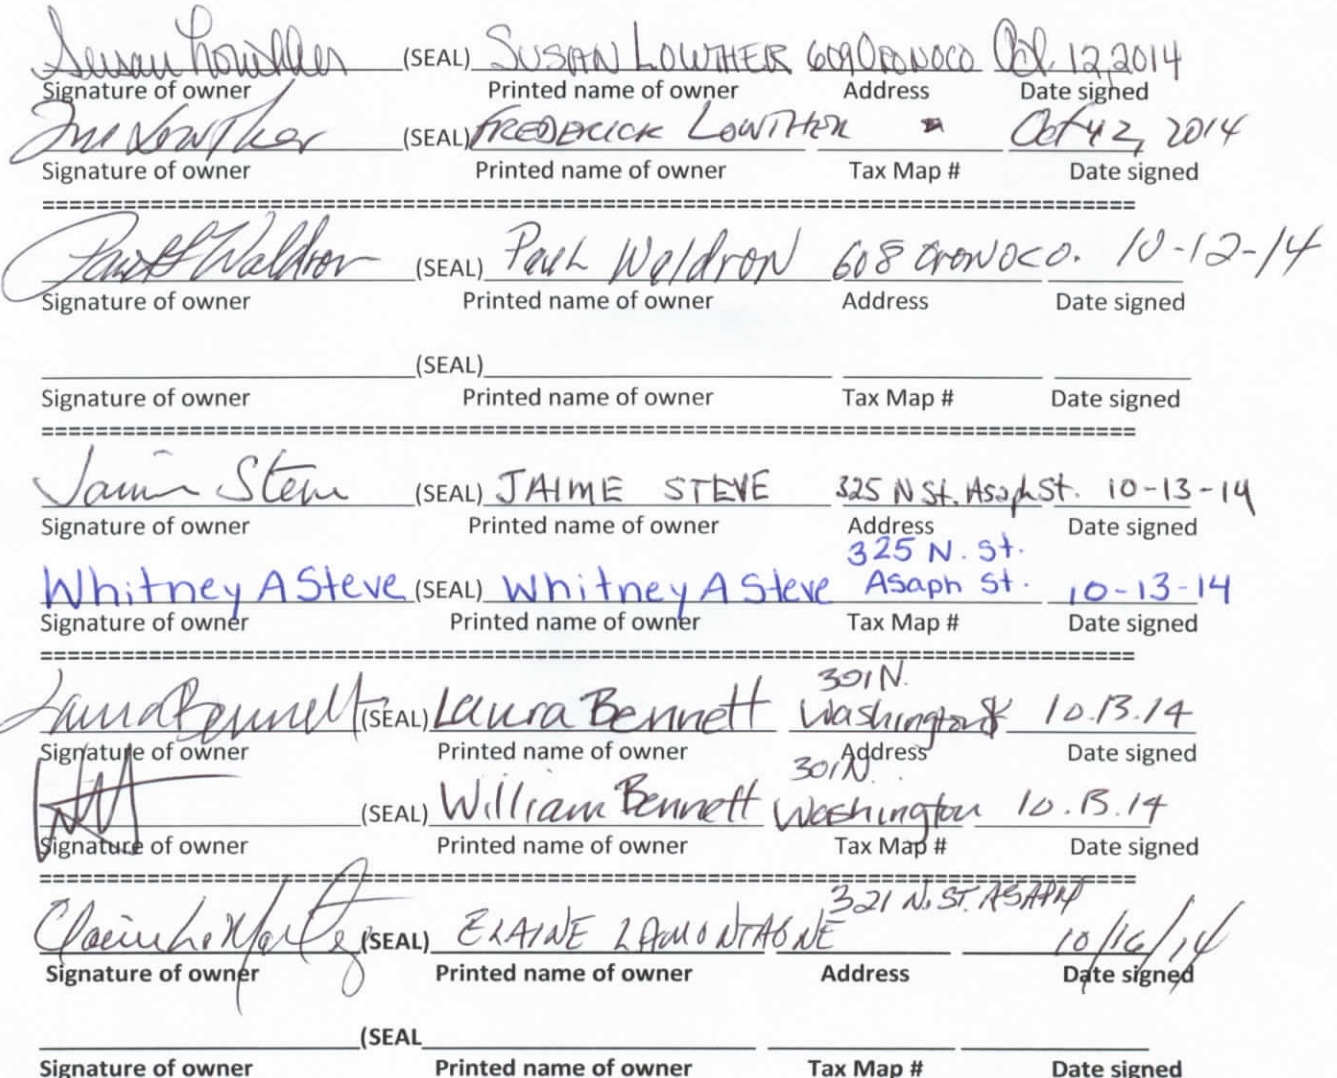 Susan Lowther (SEAL) SUSAN LOWTHER 609 ORONOCO Oct. 12, 2014
Signature of owner Printed name of owner Address Date signed
Lowther (SEAL) FREDERICK LOWTHER " Oct 12, 2014
Signature of owner Printed name of owner Tax Map # Date signed
==========
Waldron (SEAL) Paul Waldron 608 ORONOCO. 10-12-14
Signature of owner Printed name of owner Address Date signed
(SEAL)
Signature of owner Printed name of owner Tax Map # Date signed
==========
Jaime Steve (SEAL) JAIME STEVE 325 N St. Asaph St. 10-13-14
Signature of owner Printed name of owner Address Date signed
325 N. St.
Whitney A Steve (SEAL) Whitney A Steve Asaph St. 10-13-14
Signature of owner Printed name of owner Tax Map # Date signed
==========
301 N.
Laura Bennett (SEAL) Laura Bennett Washington St 10.13.14
Signature of owner Printed name of owner Address Date signed
301 N.
(SEAL) William Bennett Washington 10.13.14
Signature of owner Printed name of owner Tax Map # Date signed
==========
321 N. ST. ASAPH
(SEAL) ELAINE LAMONTAGNE 10/16/14
Signature of owner Printed name of owner Address Date signed
(SEAL
Signature of owner Printed name of owner Tax Map # Date signed